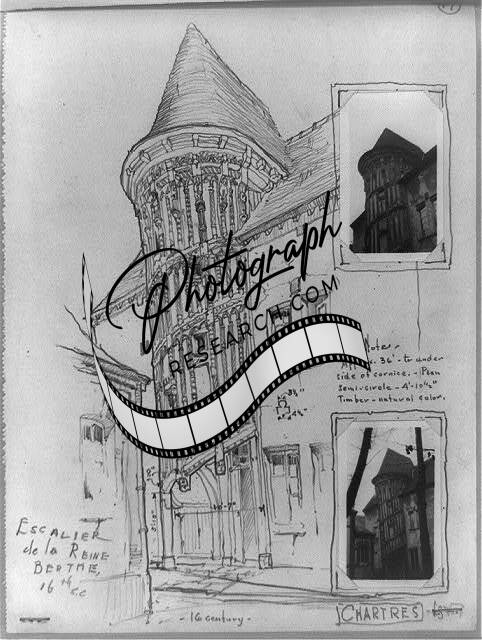 Photograph
RESEARCH.COM
Note:
App. 36' - to under
side of cornice. - Plan
Semi-circle - 4'-10½"
Timber - natural color.
ESCALIER
de la REINE
BERTHE,
16th cc
- 16 century -
CHARTRES